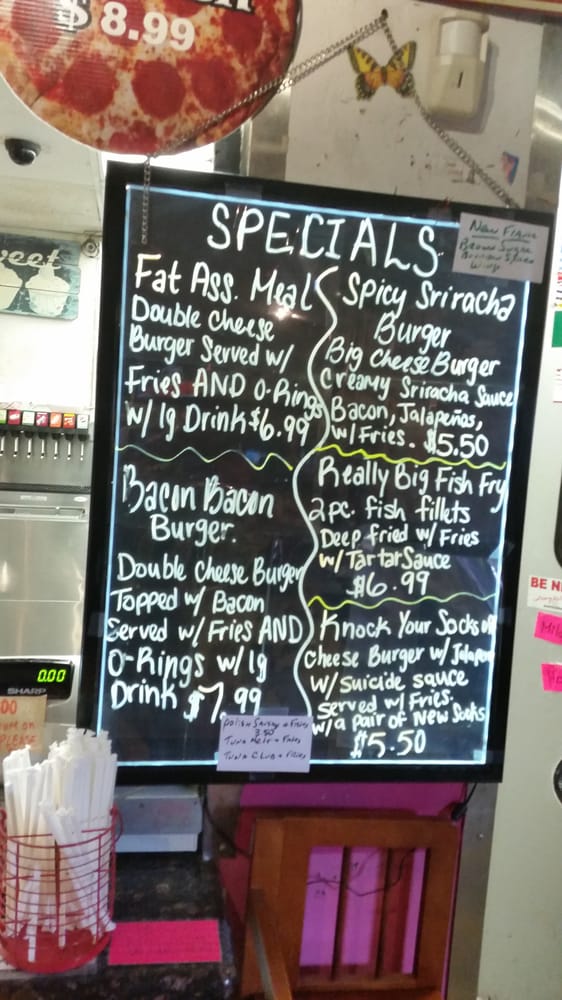 $8.99
SPECIALS
New Flavor
Brown Sugar
Bourbon
Wings
Fat Ass. Meal
Double Cheese
Burger Served w/
Fries AND O-Rings
w/ lg Drink $6.99
Spicy Sriracha
Burger
Big Cheese Burger
Creamy Sriracha Sauce
Bacon, Jalapeños,
w/ Fries. $5.50
Bacon Bacon
Burger.
Double Cheese Burger
Topped w/ Bacon
Served w/ Fries AND
O-Rings w/ lg
Drink $7.99
Really Big Fish Fry
2 pc. fish fillets
Deep fried w/ Fries
w/ Tartar Sauce
$6.99
Knock Your Socks off
Cheese Burger w/ Jalapen
w/ suicide sauce
served w/ Fries.
w/ a pair of New Socks
$5.50
Polish Sausage + Fries
3.50
Tuna Melt + Fries
Tuna Club + Fries
0.00
SHARP
PLEASE
BE N